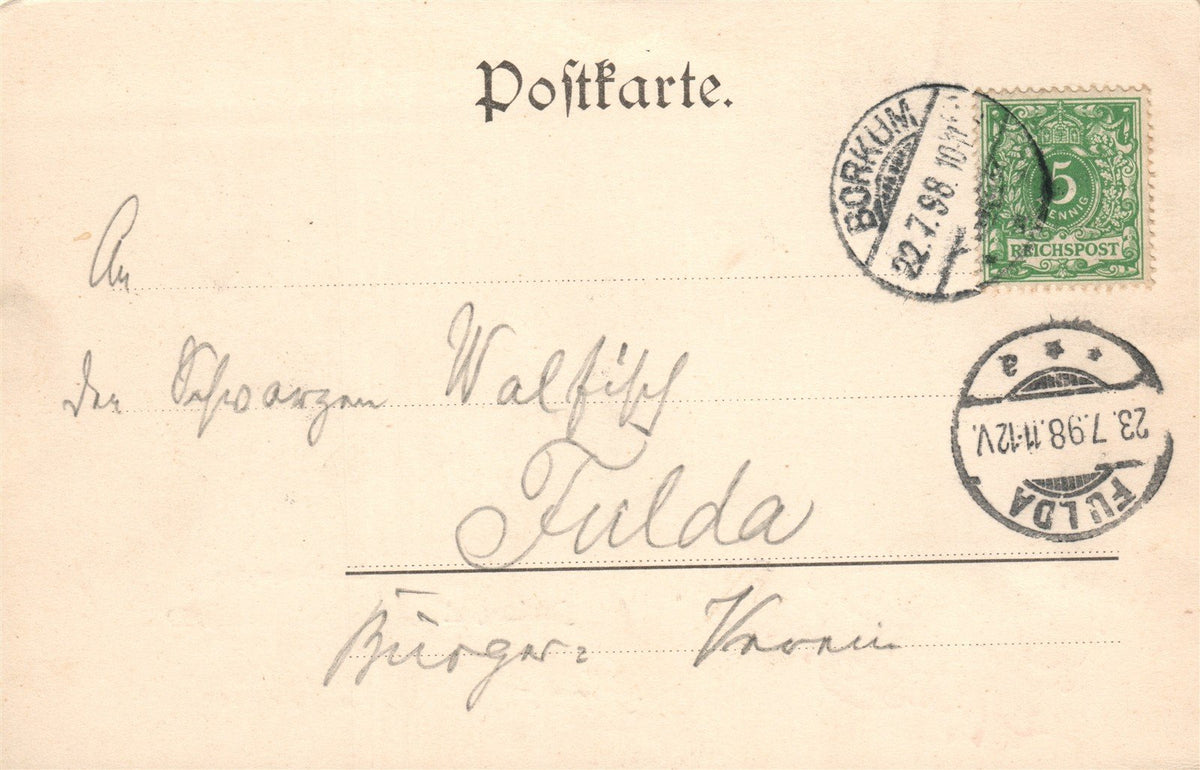 Postkarte.
BORKUM
22.7.98. 10-11
5
PFENNIG
REICHSPOST
An
den Schwarzen Walfisch
Fulda
Bürger= Verein
FULDA
23.7.98.11-12V.
a